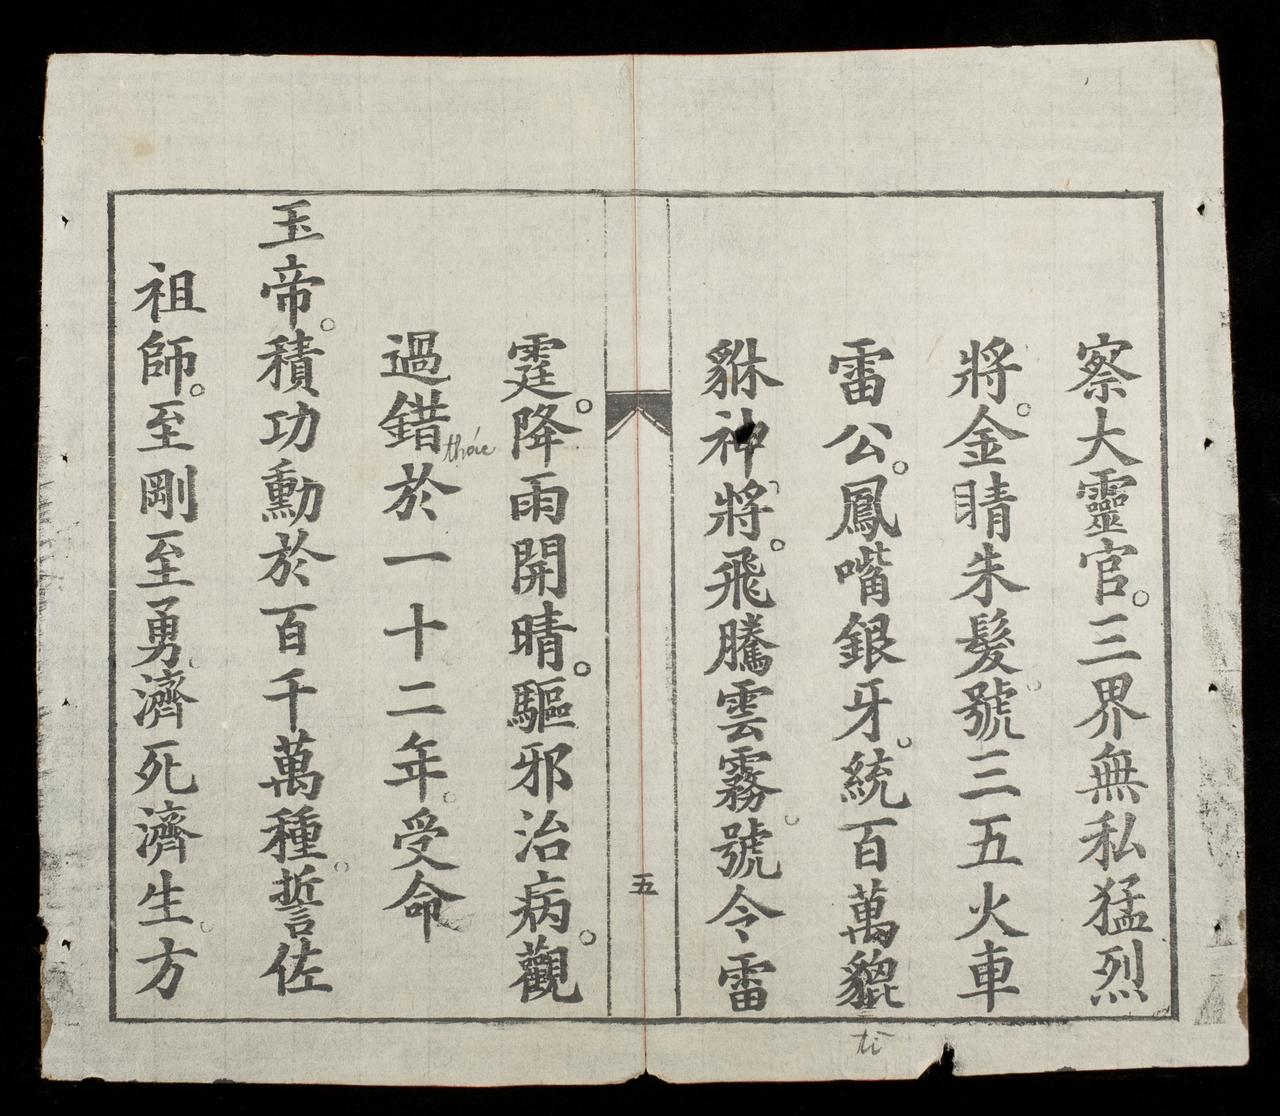 察大靈官。三界無私猛烈
將。金睛朱髮。號三五火車
雷公。鳳嘴銀牙。統百萬貔
tì
貅神將。飛騰雲霧。號令雷
五
霆。降雨開晴。驅邪治病。觀
過錯於一十二年。受命
thác
玉帝。積功勳於百千萬種。誓佐
祖師。至剛至勇。濟死濟生。方